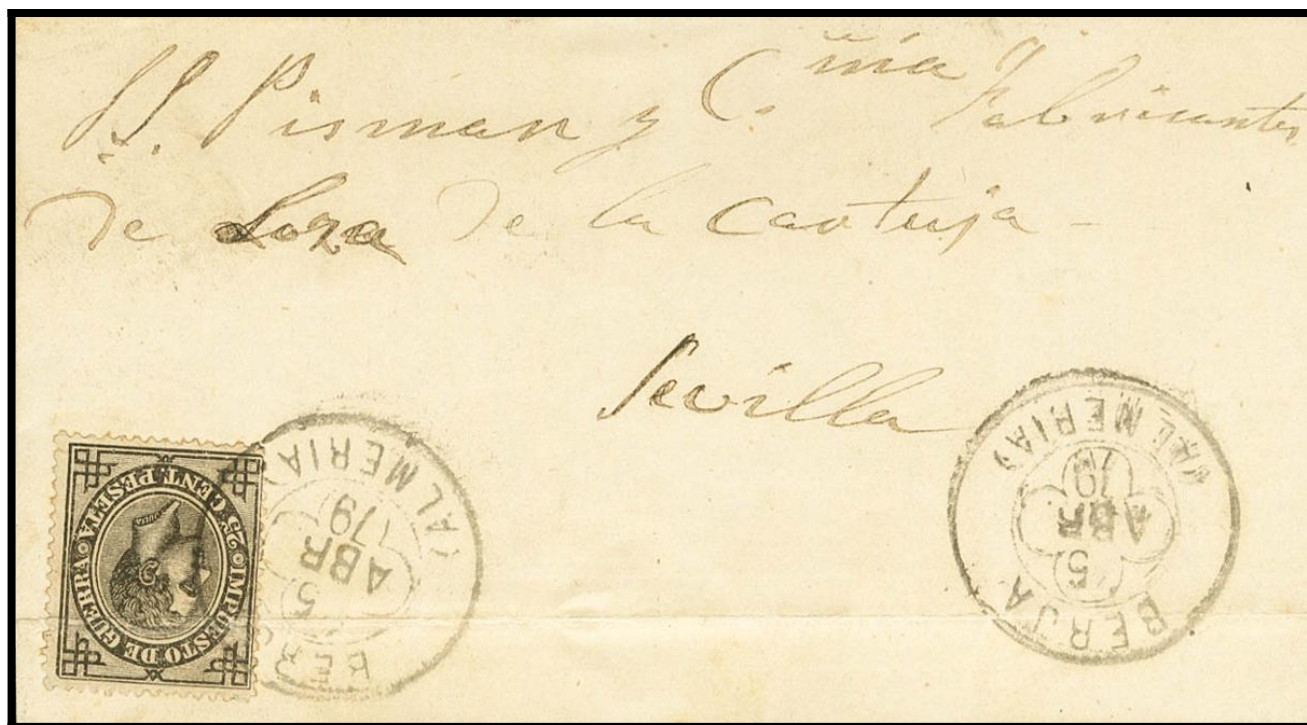 SS. Pisman y C.ñia Fabricantes
de Loza de la Cartuja -
Sevilla
IMPUESTO DE GUERRA
25 CENT. PESETA
BERJA
5
ABR
79
(ALMERIA)
BERJA
5
ABR
79
(ALMERIA)